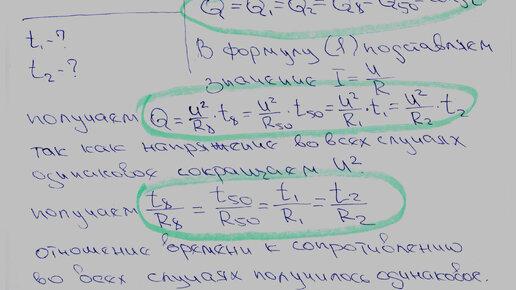 Q = Q₁ = Q₂ = Q₂₈ = Q₅₀ =
t₁ - ?
t₂ - ?
В формулу (1) подставляем
значение I = U/R
получаем Q = U²/R₈ · t₈ = U²/R₅₀ · t₅₀ = U²/R₁ · t₁ = U²/R₂ · t₂
так как напряжение во всех случаях
одинаковое сокращаем U².
получаем t₈/R₈ = t₅₀/R₅₀ = t₁/R₁ = t₂/R₂
отношение времени к сопротивлению
во всех случаях получилось одинаковое.